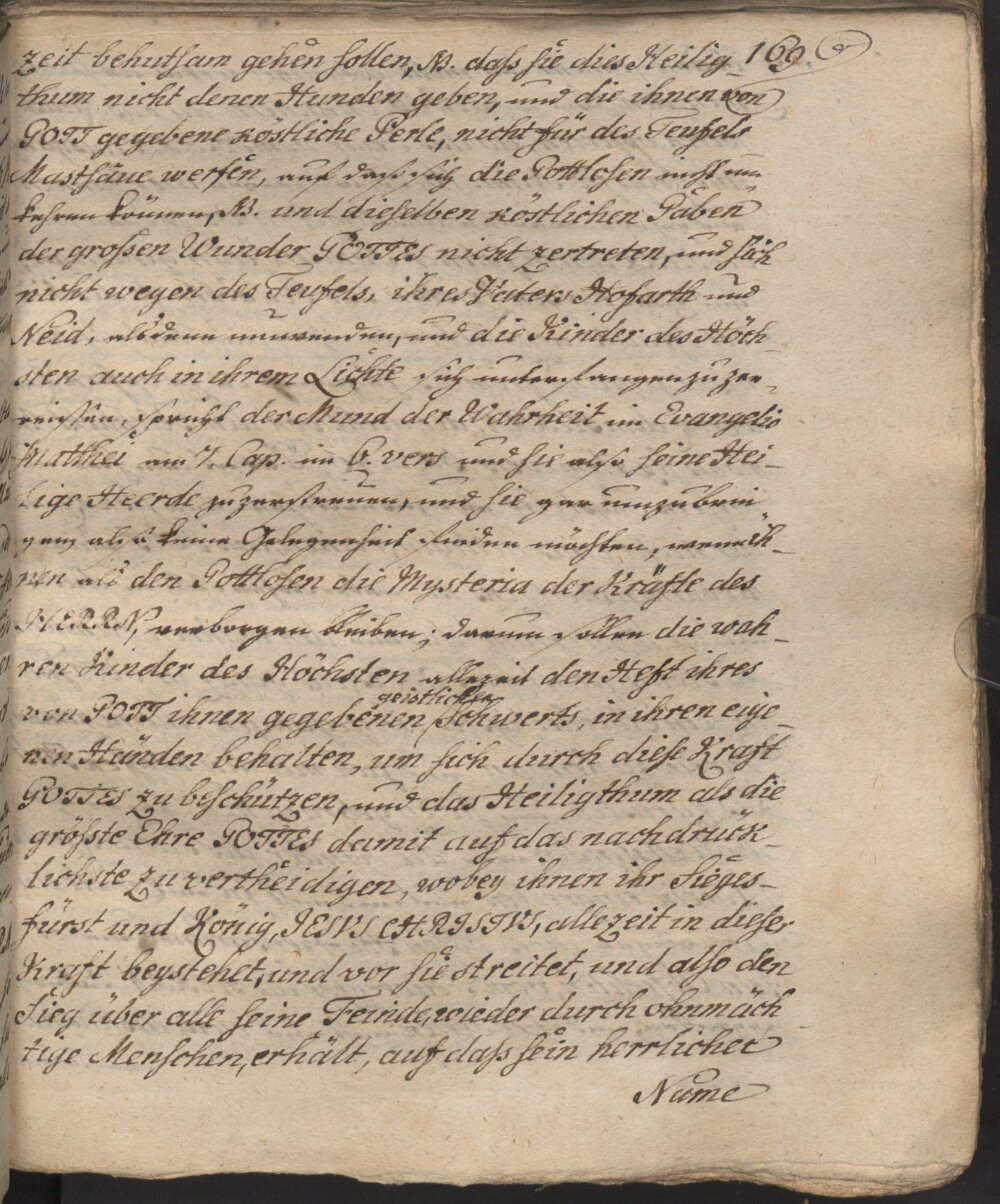 zeit behutsam gehen sollen, NB. dass sie dies Heilig- 169.
thum nicht denen Hunden geben, und die ihnen von
GOTT gegebene köstliche Perle, nicht für des Teufels
Mastsäue werfen, auf dass sich die Gottlosen nicht um-
kehren können, NB. und dieselben köstlichen Gaben
der grossen Wunder GOTTES nicht zertreten, und sich
nicht wegen des Teufels, ihres Vaters Hofarth und
Neid, alsdenn umwenden, und die Kinder des Höch-
sten auch in ihrem Lichte sich unterfangen zu zer-
reissen, spricht der Mund der Wahrheit im Evangelio
Matthei am 7. Cap. im 6. vers und sie also seine Hei-
lige Heerde zu zerstreuen, und sie gar umzubrin-
gen, also keine Gelegenheit finden möchten, wenn ih-
nen als den Gottlosen die Mysteria der Kräfte des
HERRN, verborgen bleiben; darum sollen die wah-
ren Kinder des Höchsten allezeit den Heft ihres
von GOTT ihnen gegebenen geistlichen Schwerts, in ihren eige-
nen Händen behalten, um sich durch diese Kraft
GOTTES zu beschützen, und das Heiligthum als die
grösste Ehre GOTTES damit auf das nachdrück-
lichste zu vertheidigen, wobey ihnen ihr Sieges-
fürst und König, JESVS CHRISTVS, allezeit in dieser
Kraft beystehet, und vor sie streitet, und also den
Sieg über alle seine Feinde, wieder durch ohnmäch
tige Menschen, erhält, auf dass sein herrlicher
Name